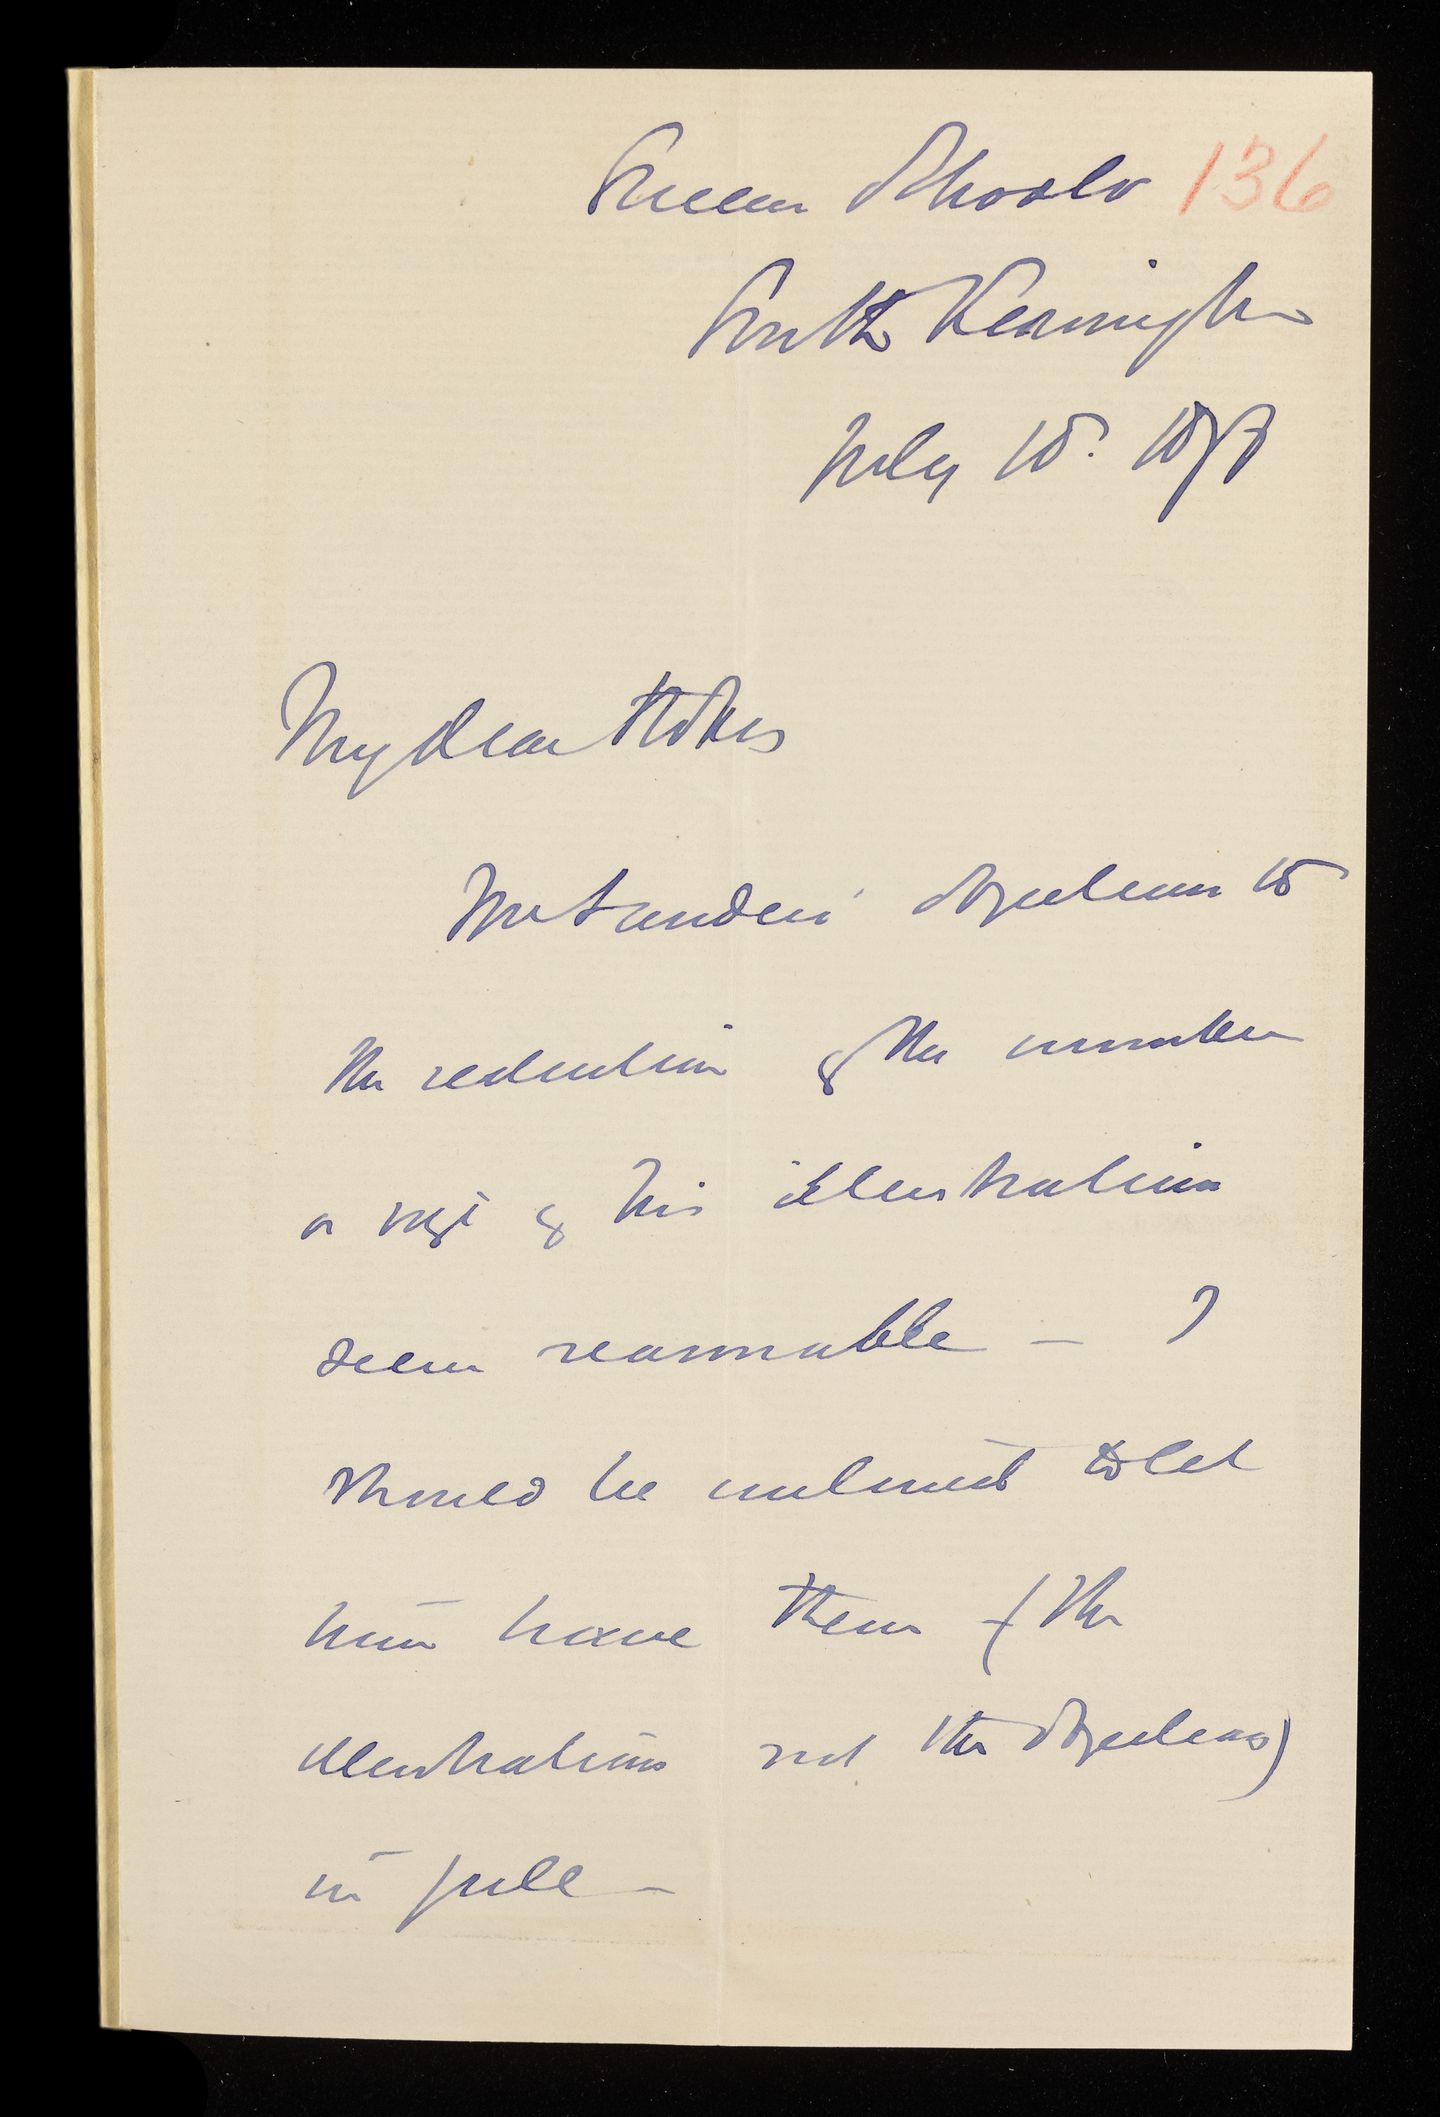 Science Schools 136
South Kensington
July 18. 1878
My dear Stokes
Mr Sanders' objections to
the reduction of the number
or size of his illustrations
seem reasonable — I
should be inclined to let
him have them (the
illustrations not the objections)
in full —